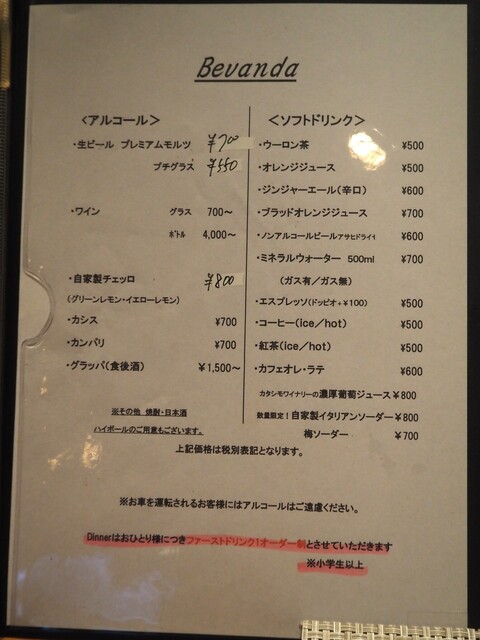 Bevanda
<アルコール>
・生ビール プレミアムモルツ ¥700
プチグラス ¥550
・ワイン グラス 700～
ボトル 4,000～
・自家製チェッロ ¥800
(グリーンレモン・イエローレモン)
・カシス ¥700
・カンパリ ¥700
・グラッパ(食後酒) ¥1,500～
※その他 焼酎・日本酒
ハイボールのご用意もございます。
<ソフトドリンク>
・ウーロン茶 ¥500
・オレンジジュース ¥500
・ジンジャーエール(辛口) ¥600
・ブラッドオレンジジュース ¥700
・ノンアルコールビールアサヒドライゼロ ¥600
・ミネラルウォーター 500ml ¥700
(ガス有/ガス無)
・エスプレッソ(ドッピオ+¥100) ¥500
・コーヒー(ice/hot) ¥500
・紅茶(ice/hot) ¥500
・カフェオレ・ラテ ¥600
カタシモワイナリーの濃厚葡萄ジュース¥800
数量限定!自家製イタリアンソーダー¥800
梅ソーダー ¥700
上記価格は税別表記となります。
※お車を運転されるお客様にはアルコールはご遠慮ください。
Dinnerはおひとり様につきファーストドリンク1オーダー制とさせていただきます
※小学生以上